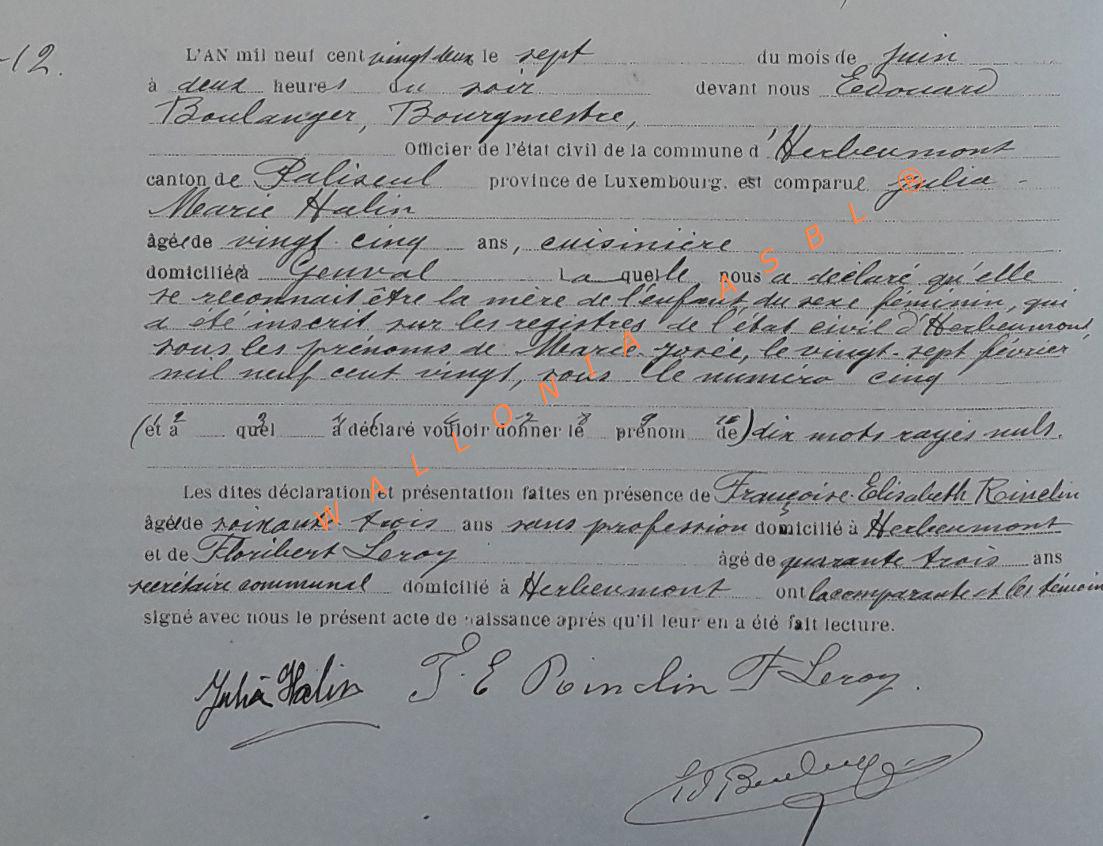 -12.
L'AN mil neuf cent vingt deux le sept du mois de juin
à deux heures du soir devant nous Edouard
Boulanger, Bourgmestre,
Officier de l'état civil de la commune d'Herbeumont
canton de Paliseul province de Luxembourg, est comparue Julia
Marie Halin
âgée de vingt cinq ans, cuisinière
domiciliée à Genval laquelle nous a déclaré qu'elle
se reconnait être la mère de l'enfant du sexe féminin, qui
a été inscrit sur les registres de l'état civil d'Herbeumont,
sous les prénoms de Marie-Josée, le vingt-sept février
mil neuf cent vingt, sous le numéro cinq
(et à quel a déclaré vouloir donner le prénom de) dix mots rayés nuls.
Les dites déclaration et présentation faites en présence de Françoise-Elisabeth
âgée de soixante trois ans sans profession domicilié à Herbeumont
et de Floribert Leroy âgé de quarante trois ans
secrétaire communal domicilié à Herbeumont ont la comparante et les témoins
signé avec nous le présent acte de naissance après qu'il leur en a été fait lecture.
Julia Halin F. E F Leroy.
Ed Boulanger
WALLONIA ASBL ®